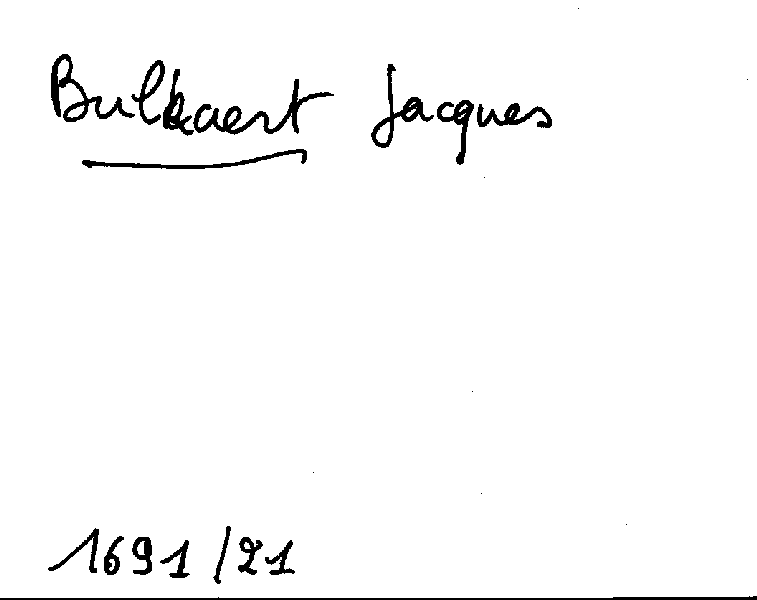 Bulkaert Jacques
1691/21